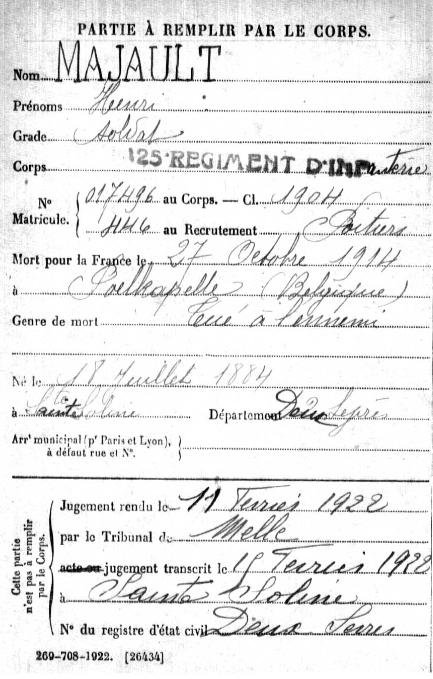 PARTIE À REMPLIR PAR LE CORPS.
Nom MAJAULT
Prénoms Henri
Grade soldat
Corps 125 REGIMENT D'INFanterie
N° Matricule. 017496 au Corps. — Cl. 1904
446 au Recrutement Poitiers
Mort pour la France le 27 Octobre 1914
à Poelkapelle (Belgique)
Genre de mort Tué à l'ennemi
Né le 18 Juillet 1884
à Sainte Soline Département Deux Sèvres
Arrt municipal (pr Paris et Lyon), à défaut rue et N°.
Cette partie n'est pas à remplir par le Corps.
Jugement rendu le 11 Février 1922
par le Tribunal de Melle
acte ou jugement transcrit le 15 Février 1922
à Sainte Soline
N° du registre d'état civil Deux Sevres
269-708-1922. [26434]